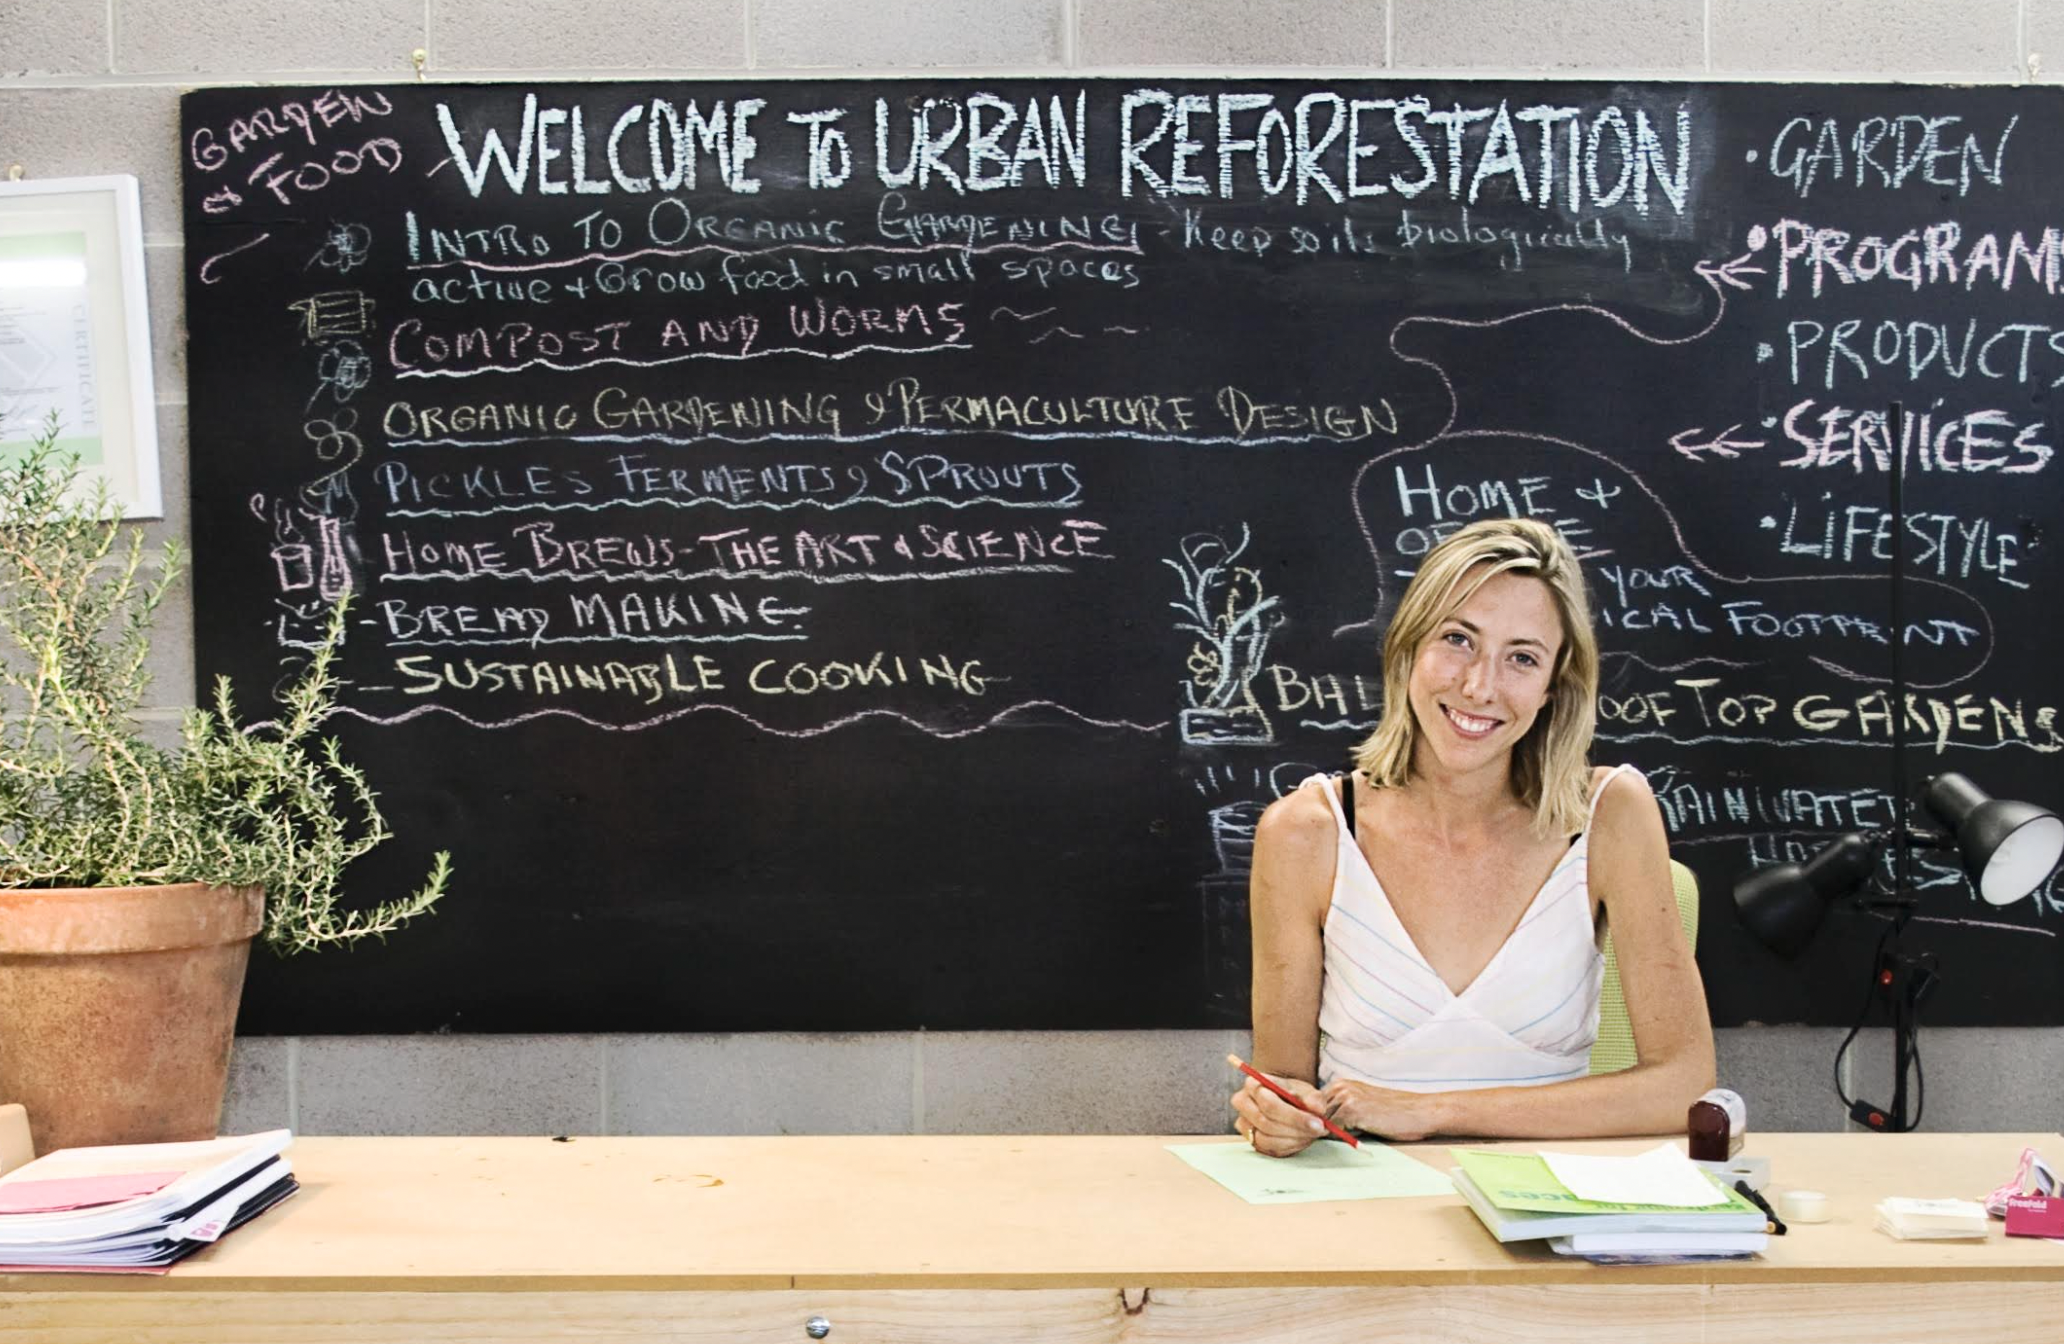 GARDEN
& FOOD
WELCOME TO URBAN REFORESTATION
INTRO TO ORGANIC GARDENING - Keep soils biologically
active + Grow food in small spaces
COMPOST AND WORMS
ORGANIC GARDENING & PERMACULTURE DESIGN
PICKLES FERMENTS & SPROUTS
HOME BREWS - THE ART & SCIENCE
- BREAD MAKING
- SUSTAINABLE COOKING
• GARDEN
• PROGRAM
• PRODUCTS
• SERVICES
• LIFESTYLE
HOME +
YOUR
ICAL FOOTPRINT
BAL OOF TOP GARDENS
RAINWATER
CERTIFICATE